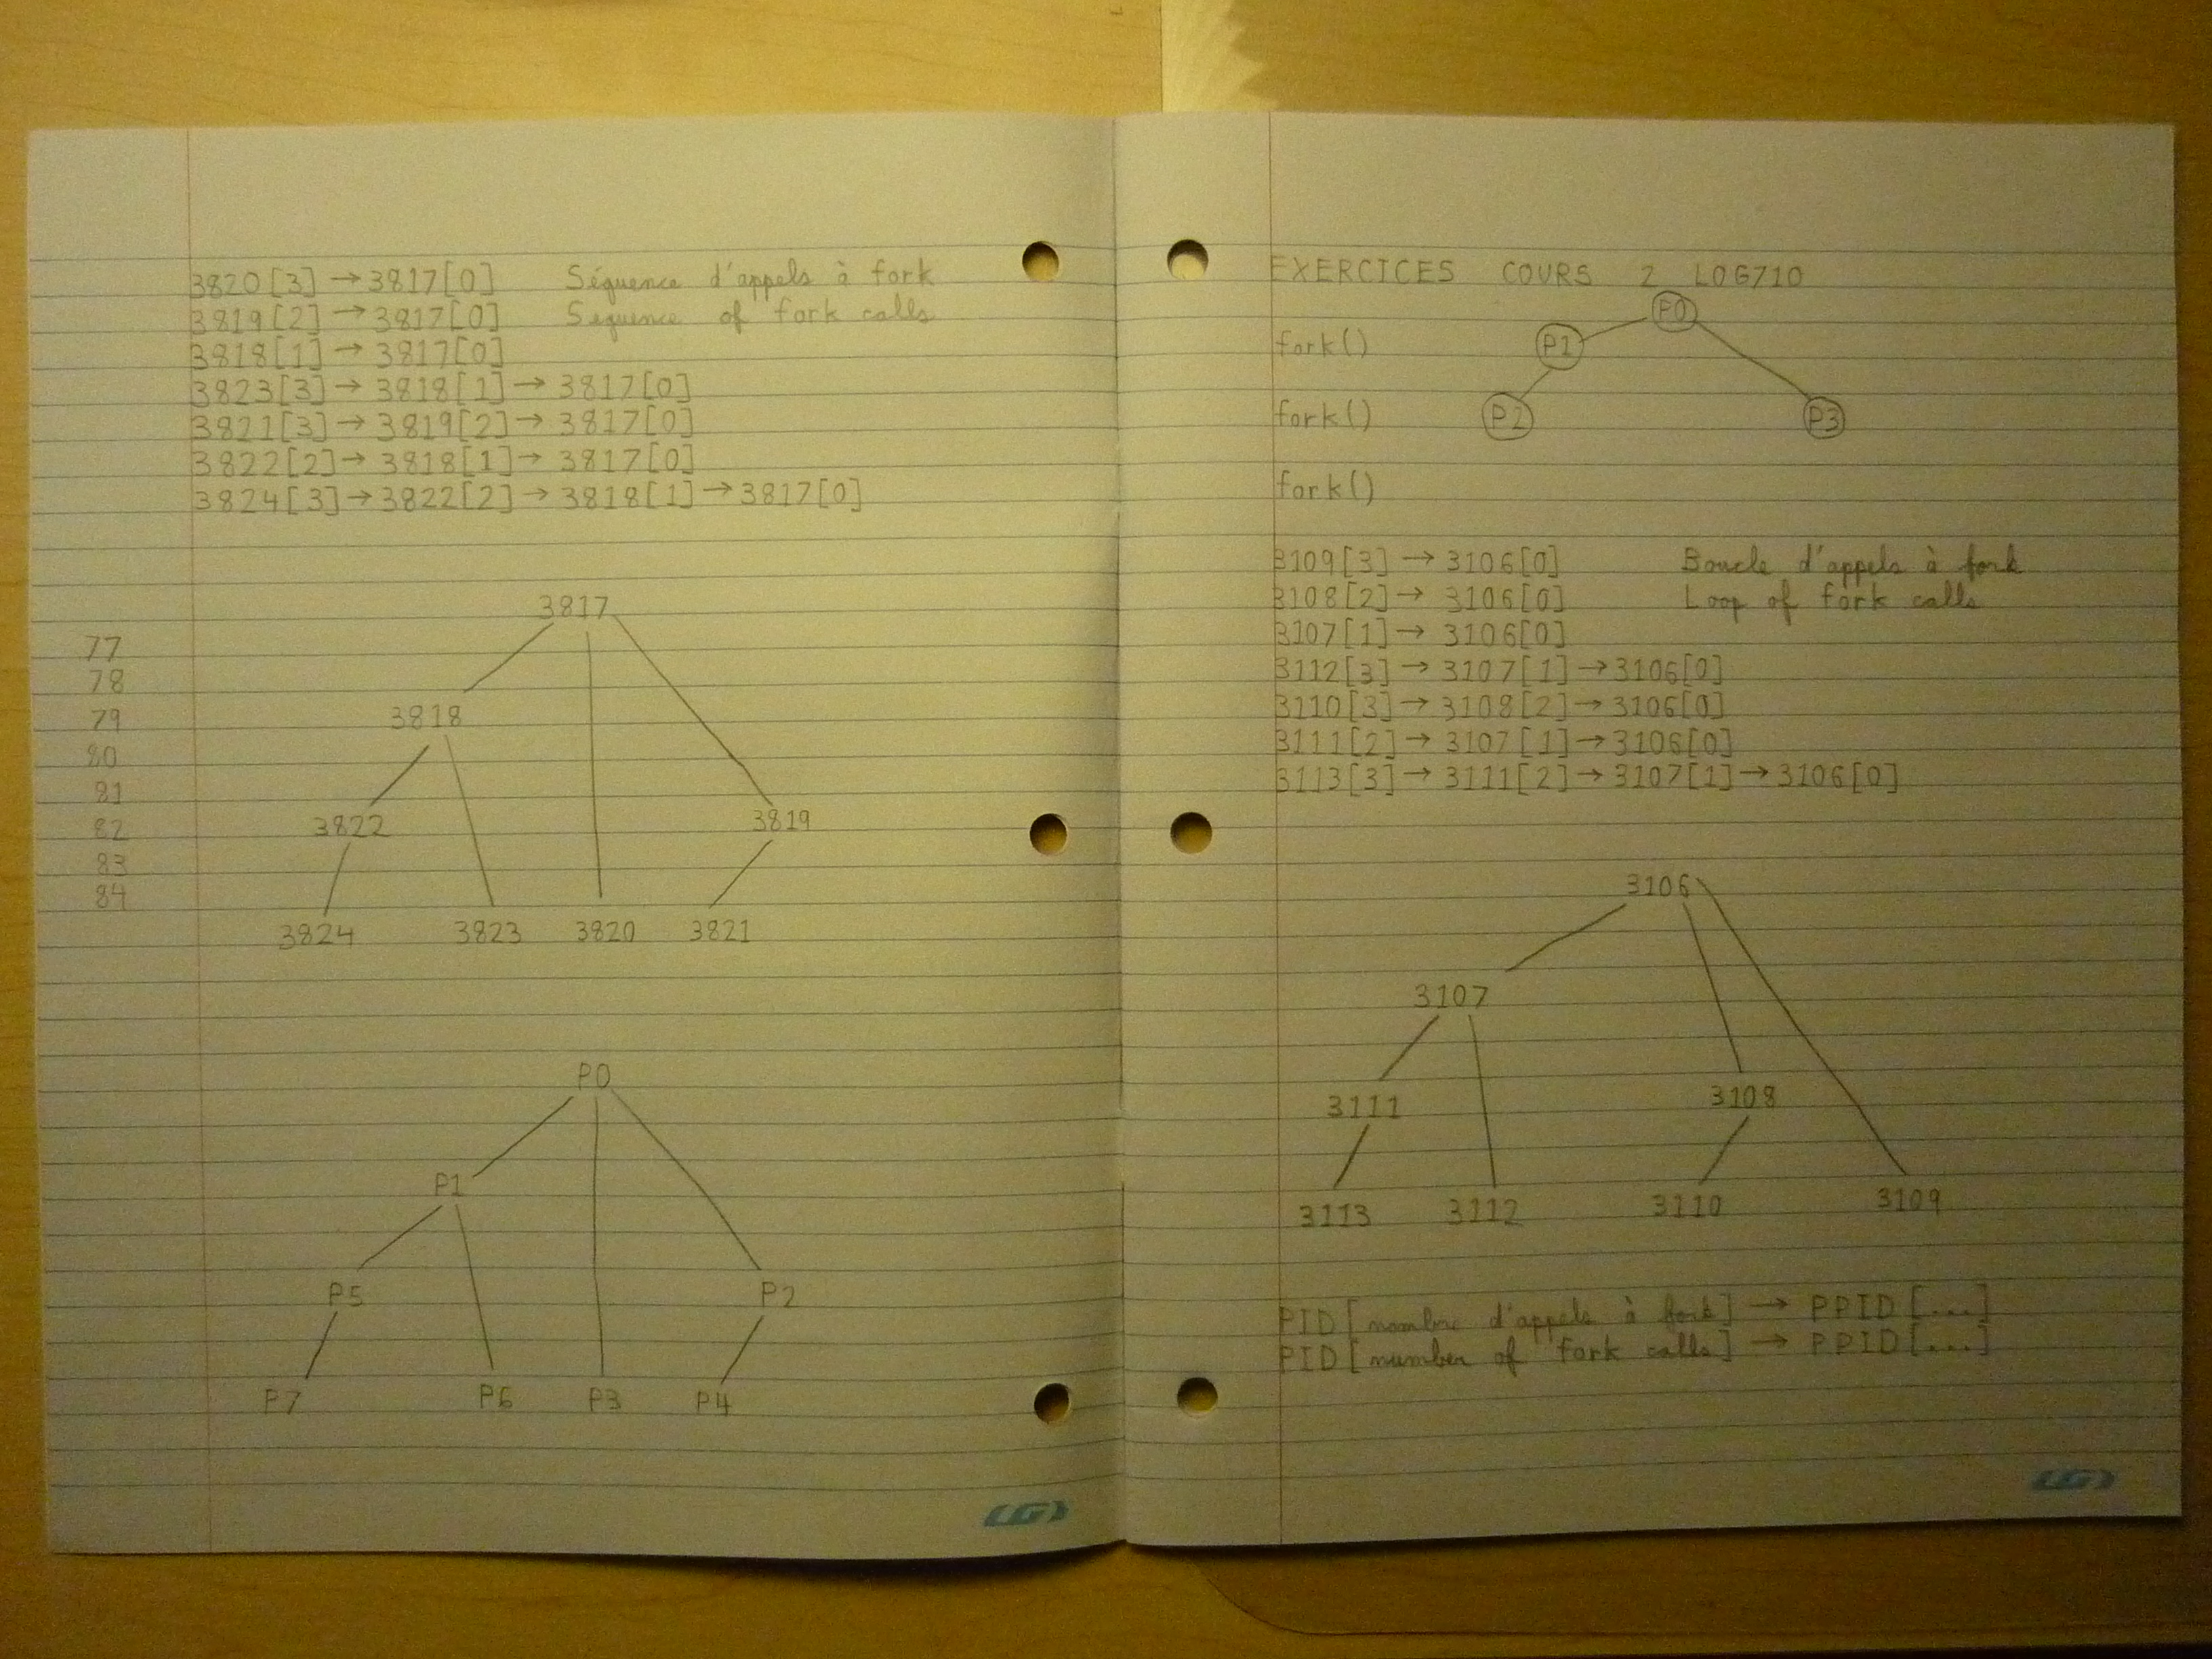 3820[3] → 3817[0] Séquence d'appels à fork
3819[2] → 3817[0] Sequence of fork calls
3818[1] → 3817[0]
3823[3] → 3818[1] → 3817[0]
3821[3] → 3819[2] → 3817[0]
3822[2] → 3818[1] → 3817[0]
3824[3] → 3822[2] → 3818[1] → 3817[0]
3817
77
78
3818
79
80
81
3822 3819
82
83
84
3824 3823 3820 3821
P0
P1
P5 P2
P7 P6 P3 P4
LG
EXERCICES COURS 2 LOG710
P0
fork() P1
fork() P2 P3
fork()
3109[3] → 3106[0] Boucle d'appels à fork
3108[2] → 3106[0] Loop of fork calls
3107[1] → 3106[0]
3112[3] → 3107[1] → 3106[0]
3110[3] → 3108[2] → 3106[0]
3111[2] → 3107[1] → 3106[0]
3113[3] → 3111[2] → 3107[1] → 3106[0]
3106
3107
3111 3108
3113 3112 3110 3109
PID[nombre d'appels à fork] → PPID[...]
PID[number of fork calls] → PPID[...]
LG